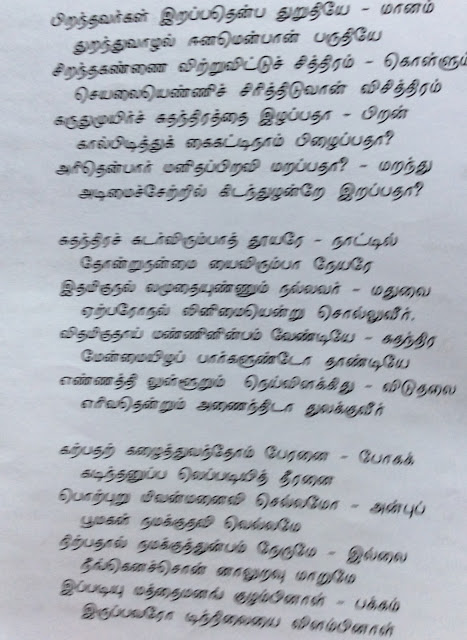 பிறந்தவர்கள் இறப்பதென்ப துறுதியே - மானம்
துறந்துவாழுல் ஈனமென்பான் பருதியே
சிறந்தகண்ணை விற்றுவிட்டுச் சித்திரம் - கொள்ளும்
செயலையெண்ணிச் சிரித்திடுவான் விசித்திரம்
கருதுமுயிர்ச் சுதந்திரத்தை இழப்பதா - பிறன்
கால்பிடித்துக் கைகட்டிநாம் பிழைப்பதா?
அரிதென்பார் மனிதப்பிறவி மறப்பதா? - மறந்து
அடிமைச்சேற்றில் கிடந்துழன்றே இறப்பதா?
சுதந்திரச் சுடர்விரும்பாத் தூயரே - நாட்டில்
தோன்றுநன்மை யைவிரும்பா நேயரே
இதமிகுநல் லமுதையுண்ணும் நல்லவர் - மதுவை
ஏற்பரோநல் லினிமையென்று சொல்லுவீர்.
விதமிகுதாய் மண்ணினின்பம் வேண்டியே - சுதந்திர
மேன்மையிழப் பார்களுண்டோ தாண்டியே
எண்ணத்தி லுள்ளூறும் நெய்விளக்கிது - விடுதலை
எரிவதென்றும் அணைந்திடா துலக்குவீர்
கற்பதற் கழைத்துவந்தோம் பேரனை - போகக்
கடிந்தனுப்ப லெப்படியித் தீரனை
பொற்புறு மிவன்மனைவி செல்லமோ - அன்புப்
பூமகன் நமக்குதவி வெல்லமே
நிற்பதால் நமக்குத்துன்பம் நேருமே - இல்லை
நீங்கெனச்சொன் னாலுறவு மாறுமே
இப்படியு மத்தைமனங் குழம்பினாள் - பக்கம்
இருப்பவரோ டிந்நிலையை விளம்பினாள்